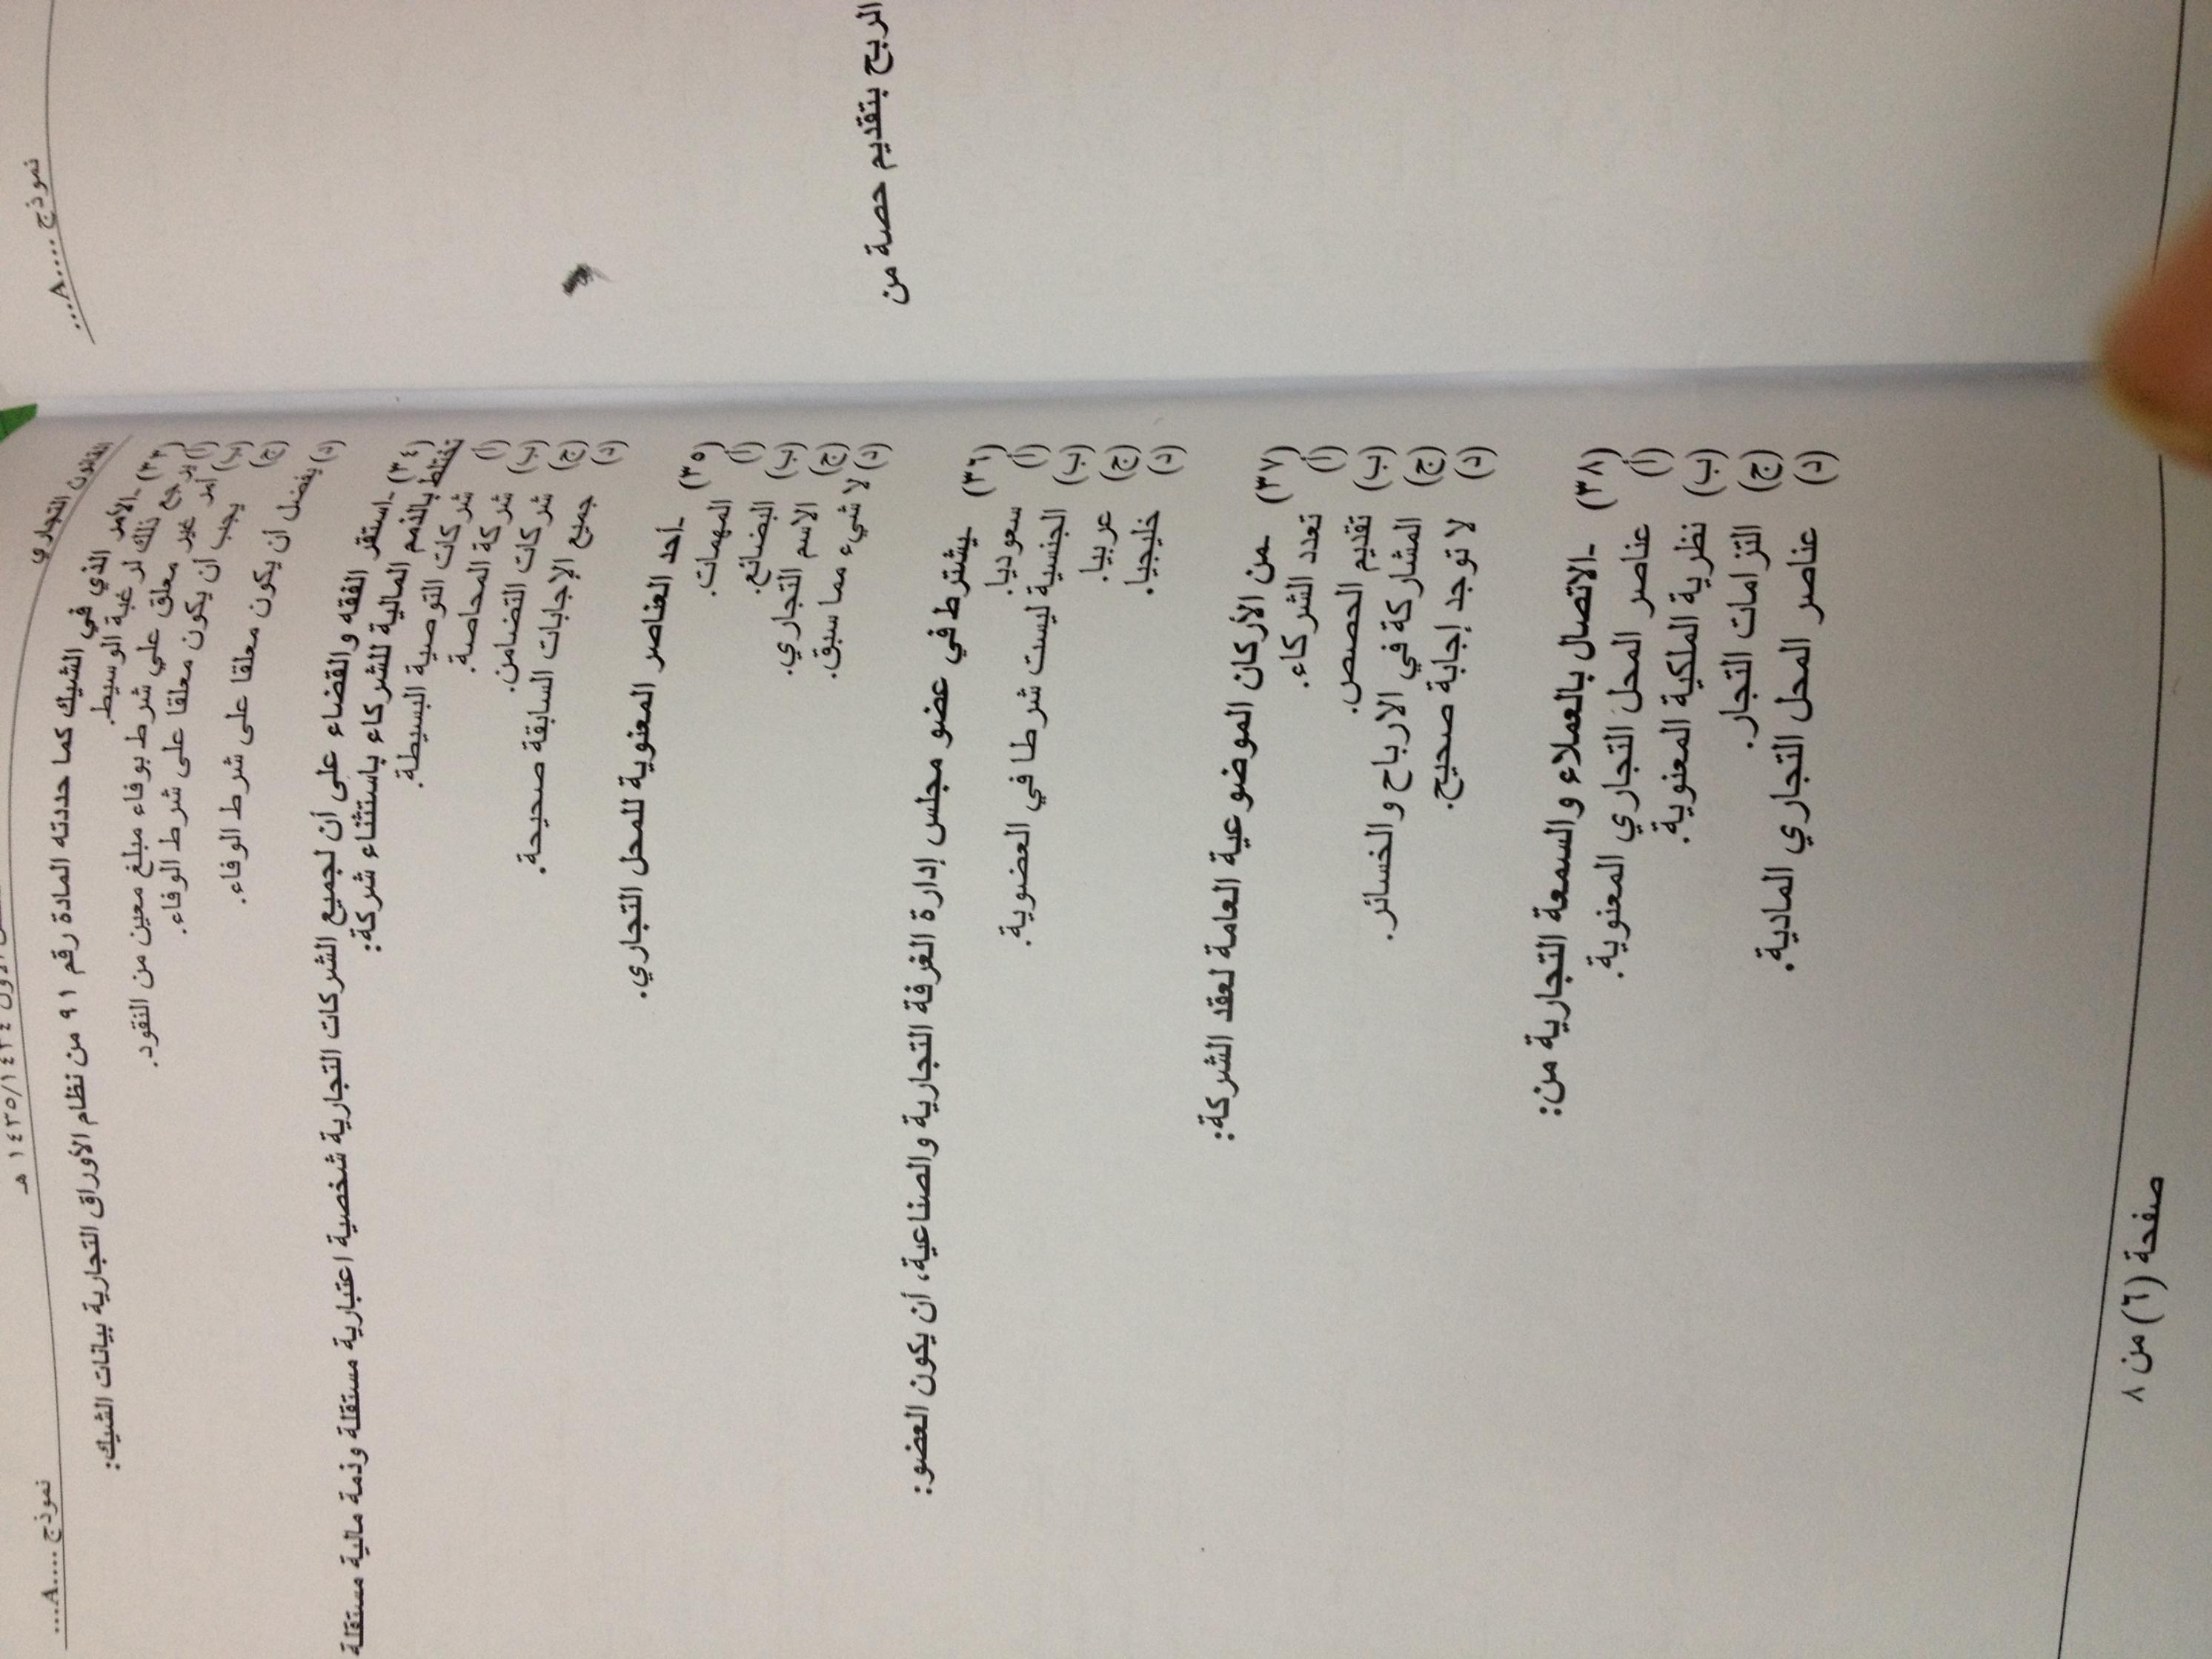 القانون التجاري
١٤٣٤/١٤٣٥ هـ
نموذج ....A...
(٣٣) -الأمر الذي في الشيك كما حددته المادة رقم ٩١ من نظام الأوراق التجارية بيانات الشيك:
(أ) يرجع ذلك لرغبة الوسيط.
(ب) أمر غير معلق علي شرط بوفاء مبلغ معين من النقود.
(ج) يجب أن يكون معلقا على شرط الوفاء.
(د) يفضل أن يكون معلقا على شرط الوفاء.
(٣٤) -استقر الفقه والقضاء على أن لجميع الشركات التجارية شخصية اعتبارية مستقلة وذمة مالية مستقلة
تختلط بالذمم المالية للشركاء باستثناء شركة:
(أ) شركات التوصية البسيطة.
(ب) شركة المحاصة.
(ج) شركات التضامن.
(د) جميع الإجابات السابقة صحيحة.
(٣٥) -أحد العناصر المعنوية للمحل التجاري.
(أ) المهمات.
(ب) البضائع.
(ج) الاسم التجاري.
(د) لا شيء مما سبق.
(٣٦) -يشترط في عضو مجلس إدارة الغرفة التجارية والصناعية، أن يكون العضو:
(أ) سعوديا.
(ب) الجنسية ليست شرطا في العضوية.
(ج) عربيا.
(د) خليجيا.
(٣٧) -من الأركان الموضوعية العامة لعقد الشركة:
(أ) تعدد الشركاء.
(ب) تقديم الحصص.
(ج) المشاركة في الارباح والخسائر.
(د) لا توجد إجابة صحيح.
(٣٨) -الاتصال بالعملاء والسمعة التجارية من:
(أ) عناصر المحل التجاري المعنوية.
(ب) نظرية الملكية المعنوية.
(ج) التزامات التجار.
(د) عناصر المحل التجاري المادية.
صفحة (٦) من ٨
نموذج ....A...
الربح بتقديم حصة من